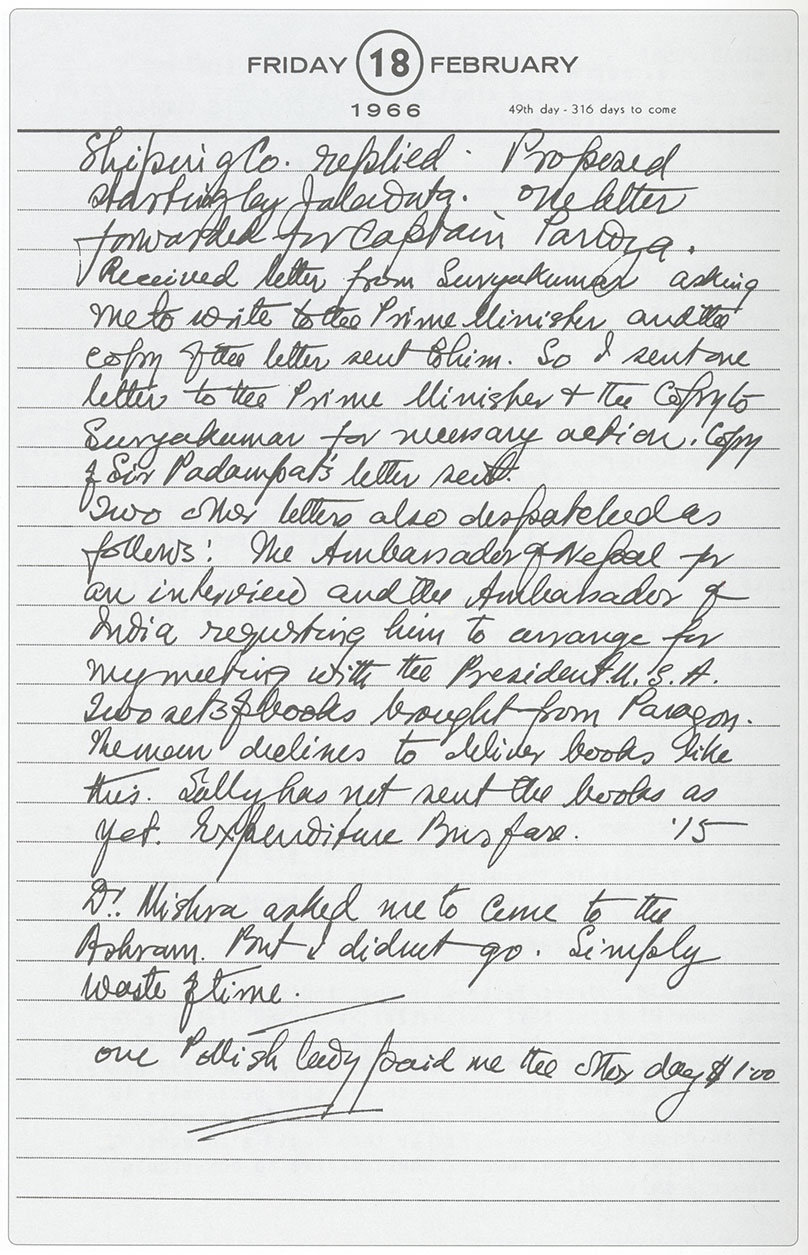 FRIDAY 18 FEBRUARY
1966 49th day - 316 days to come
Shiping Co. replied. Proposed
starting by Jaladuta. One letter
forwarded for Captain Pandya.
Received letter from Suryakumar asking
me to write to the Prime Minister and the
copy of the letter sent to him. So I sent one
letter to the Prime Minister & the Copy to
Suryakumar for necessary action. Copy
of Sir Padampat's letter sent.
Two other letters also despatched as
follows: The Ambassador of Nepal for
an interview and the Ambassador of
India requsting him to arrange for
my meeting with the President U.S.A.
Two sets of books brought from Paragon.
The man declines to deliver books like
this. Sally has not sent the books as
yet. Expenditure Bus fare. '15
Dr. Mishra asked me to come to the
Ashram. But I didnt go. Simply
waste of time.
One Pollish lady paid me the other day $1.00